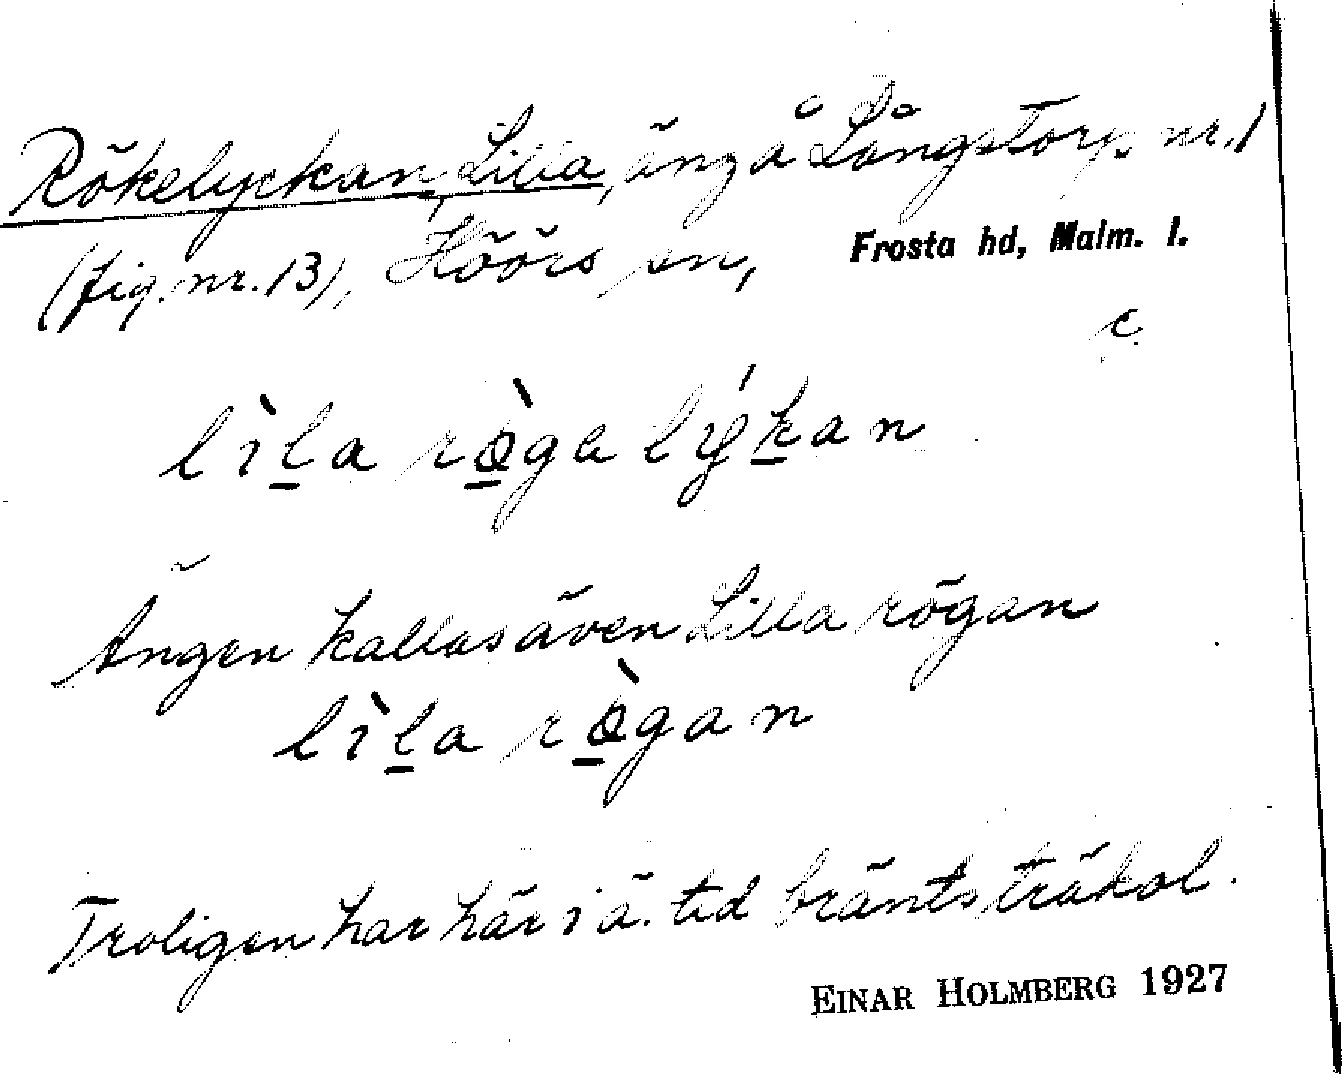 Rökelyckan, Lilla, äng å Långstorp nr. 1
(fig. nr. 13), Höörs sn, Frosta hd, Malm. l.
c.
lìla rògalýkan
Ängen kallas även Lilla rögan
lìla rògan
Troligen har här i ä. tid bränts träkol.
EINAR HOLMBERG 1927